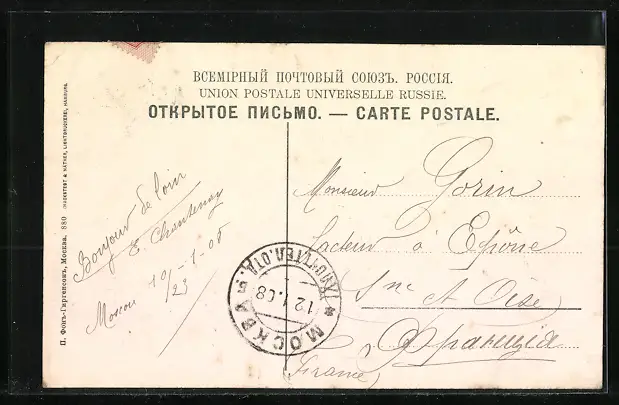 ВСЕМІРНЫЙ ПОЧТОВЫЙ СОЮЗЪ. РОССІЯ.
UNION POSTALE UNIVERSELLE RUSSIE.
ОТКРЫТОЕ ПИСЬМО. — CARTE POSTALE.
П. Фонъ-Гиргенсонъ, Москва. 880
Bonjour de loin
E. Chentenay
Moscou 10/23 - 1 - 08
Monsieur Gorin
facteur à Epône
Sne & Oise
Франція
(France)
МОСКВА
12.1.08